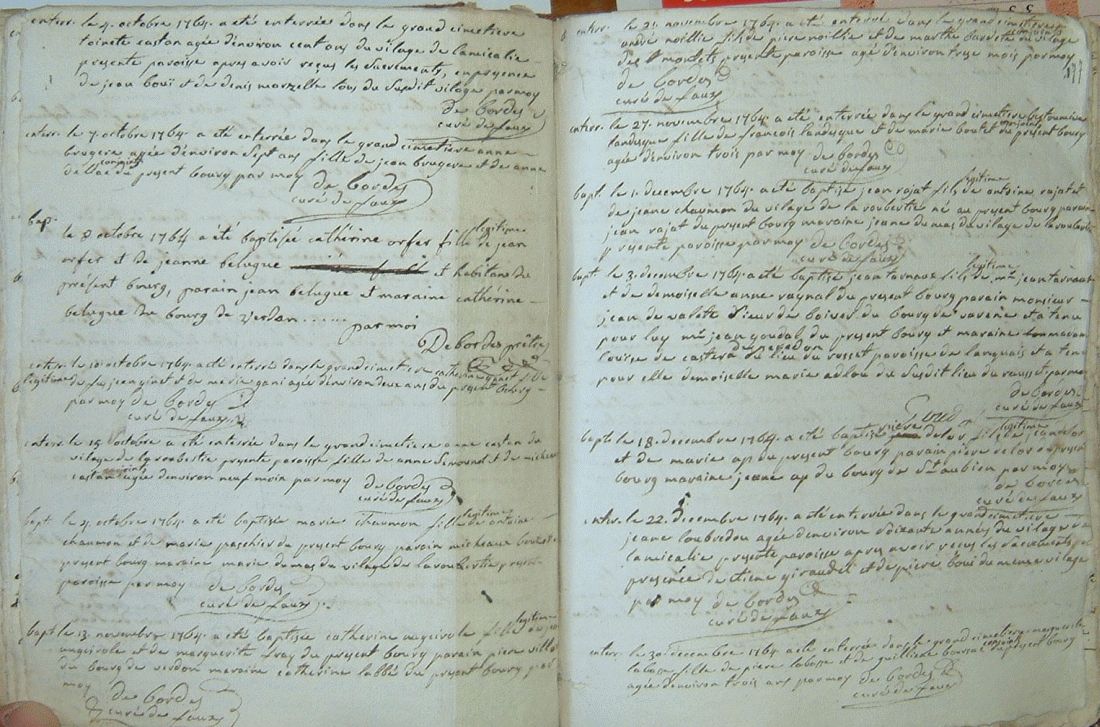 enterr. le 4. octobre 1764. a eté enterrée dans le grand cimetiere
tointe castan agée d'environ cent ans du vilage de lamicalie
presente paroisse apres avoir reçus les sacrements, en presence
de jean boui et de denis marzelle tous du susdit vilage par moy
de bordes
curé de faux
enterr. le 7. octobre 1764. a été enterrée dans le grand cimetière anne
brugere agée d'environ sept ans fille de jean brugere et de anne
conjoints
du present bourg par moy
de bordes
curé de faux
bap.
légitime
le 8 octobre 1764 a été baptisée cathérine orfer fille de jean
orfer et de jeanne belugue et habitans du
présent bourg, parain jean belugue et maraine cathérine
belugue du bourg de verdon
par moi
Debordes prêtre
enterr. le 10. octobre 1764 a eté enterrée dans le grand cimetiere catherine fille
légitime de jean et de marie agée d'environ deux ans du present bourg
par moy de bordes
curé de faux
enterr. le 15. octobre a eté enterrée dans le grand cimetiere anne castan du
vilage de la roubertie presente paroisse fille de anne et de
conjoints
castan agée d'environ neuf mois par moy de bordes
curé de faux
légitime
bapt. le octobre 1764. a eté baptisée marie chaumon fille de antoine
chaumon et de marie paschier du present bourg parain micheau
present bourg maraine marie dumas du vilage de la roubertie presente
paroisse par moy de bordes
curé de faux
légitime
bapt. le 13. novembre 1764. a eté baptisée catherine angeirole fille de jean
angeirole et de marguerite du present bourg parain piere
du bourg de verdon maraine catherine labbé du present bourg par
moy de bordes
curé de faux
enterr. le 21. novembre 1764. a eté enterré dans le grand cimetiere
conjoints
andré noillie fils de piere noillie et de marthe du vilage
des presente paroisse agé d'environ mois par moy
de bordes
curé de faux
enterr. le 27. novembre 1764. a eté enterrée dans le grand cimetiere
conjoints
landesque fille de francois landesque et de marie boutet du present bourg
agée d'environ trois par moy de bordes
curé de faux
légitime
bapt. le 1. decembre 1764. a eté baptisé jean rajat fils de antoine rajat et
de jeane chaumon du vilage de la roubertie né au present bourg parain
jean rajat du present bourg maraine jeane dumas du vilage de la roubertie
presente paroisse par moy de bordes
curé de faux
légitime
bapt. le 3. decembre 1764. a eté baptisé jean fils de mr. jean
et de demoiselle anne raynal du present bourg parain monsieur
jean de valette sieur de du bourg de et a tenu
pour luy mr. jean goudal du present bourg et maraine madame
louise de du lieu du rosset paroisse de lanquais et a tenu
pour elle demoiselle marie adlou du susdit lieu du par moy
de bordes
curé de faux
piere
légitime
bapt. le 18. decembre 1764. a eté baptisé delor fils de jean delor
et de marie ap du present bourg parain piere delor du present
bourg maraine jeane ap du bourg de st. aubien par moy
de bordes
curé de faux
enterr. le 22. decembre 1764. a eté enterrée dans le grand cimetiere
jeane loubredou agée d'environ soixante années du vilage de
lamicalie presente paroisse apres avoir reçus les sacrements
presence de etiene giraudel et de piere boui du meme vilage
par moy de bordes
curé de faux
enterr. le 30 decembre 1764 a eté enterrée dans le grand cimetiere marguerite
conjoints
labosse fille de piere labosse et de du present bourg
agée d'environ trois ans par moy de bordes
curé de faux